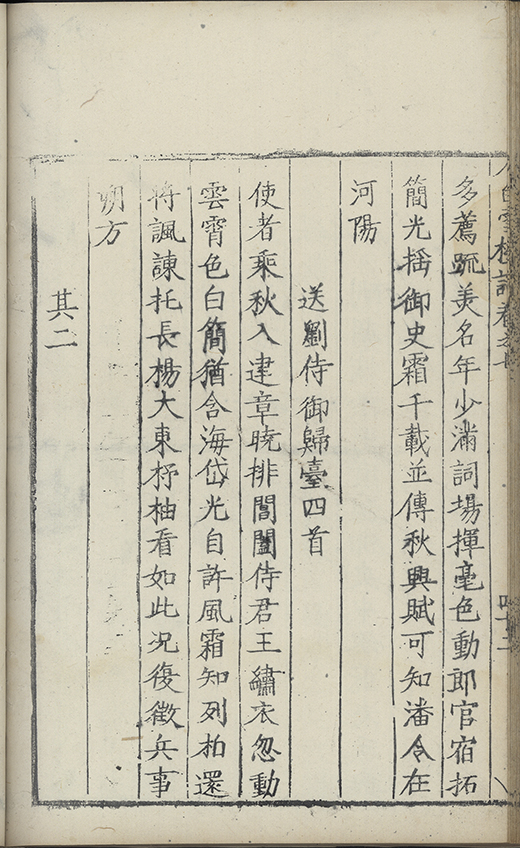 白雪樓詩卷之
多薦疏羙名年少滿詞場揮毫色動郎官宿拓
簡光搖御史霜千載並傳秋興賦可知潘令在
河陽
送劉侍御歸臺四首
使者乘秋入建章曉排閶闔侍君王繡衣忽動
雲霄色白簡猶含海岱光自許風霜知列柏還
將諷諫托長楊大東杼柚看如此况復徵兵事
朔方
其二